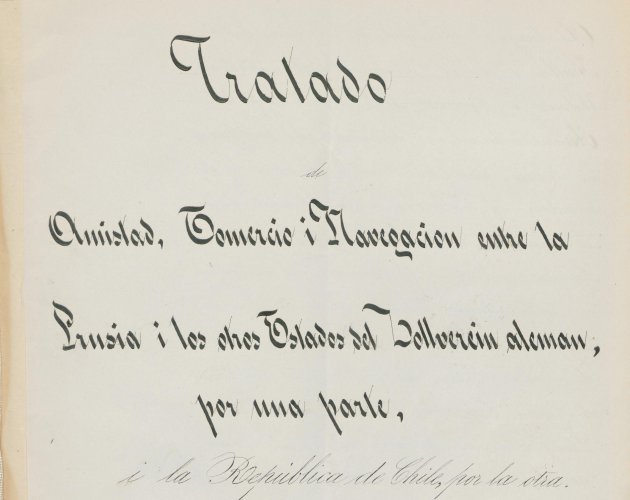 Tratado
de
Amistad, Comercio i Navegacion entre la
Prusia i los otros Estados del Zollverein aleman,
por una parte,
i la República de Chile, por la otra.